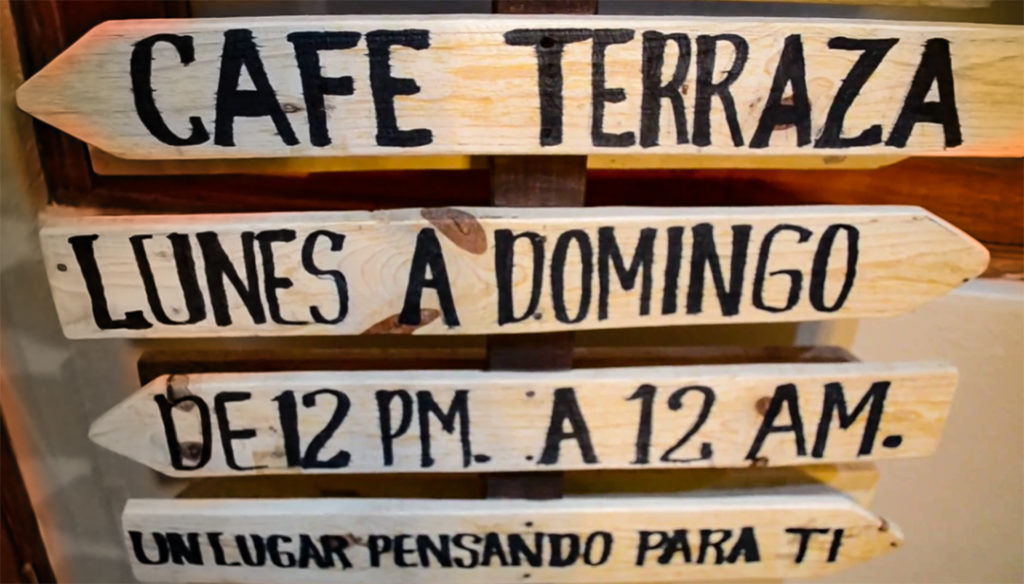 CAFE TERRAZA
LUNES A DOMINGO
DE 12 PM. A 12 AM.
UN LUGAR PENSANDO PARA TI